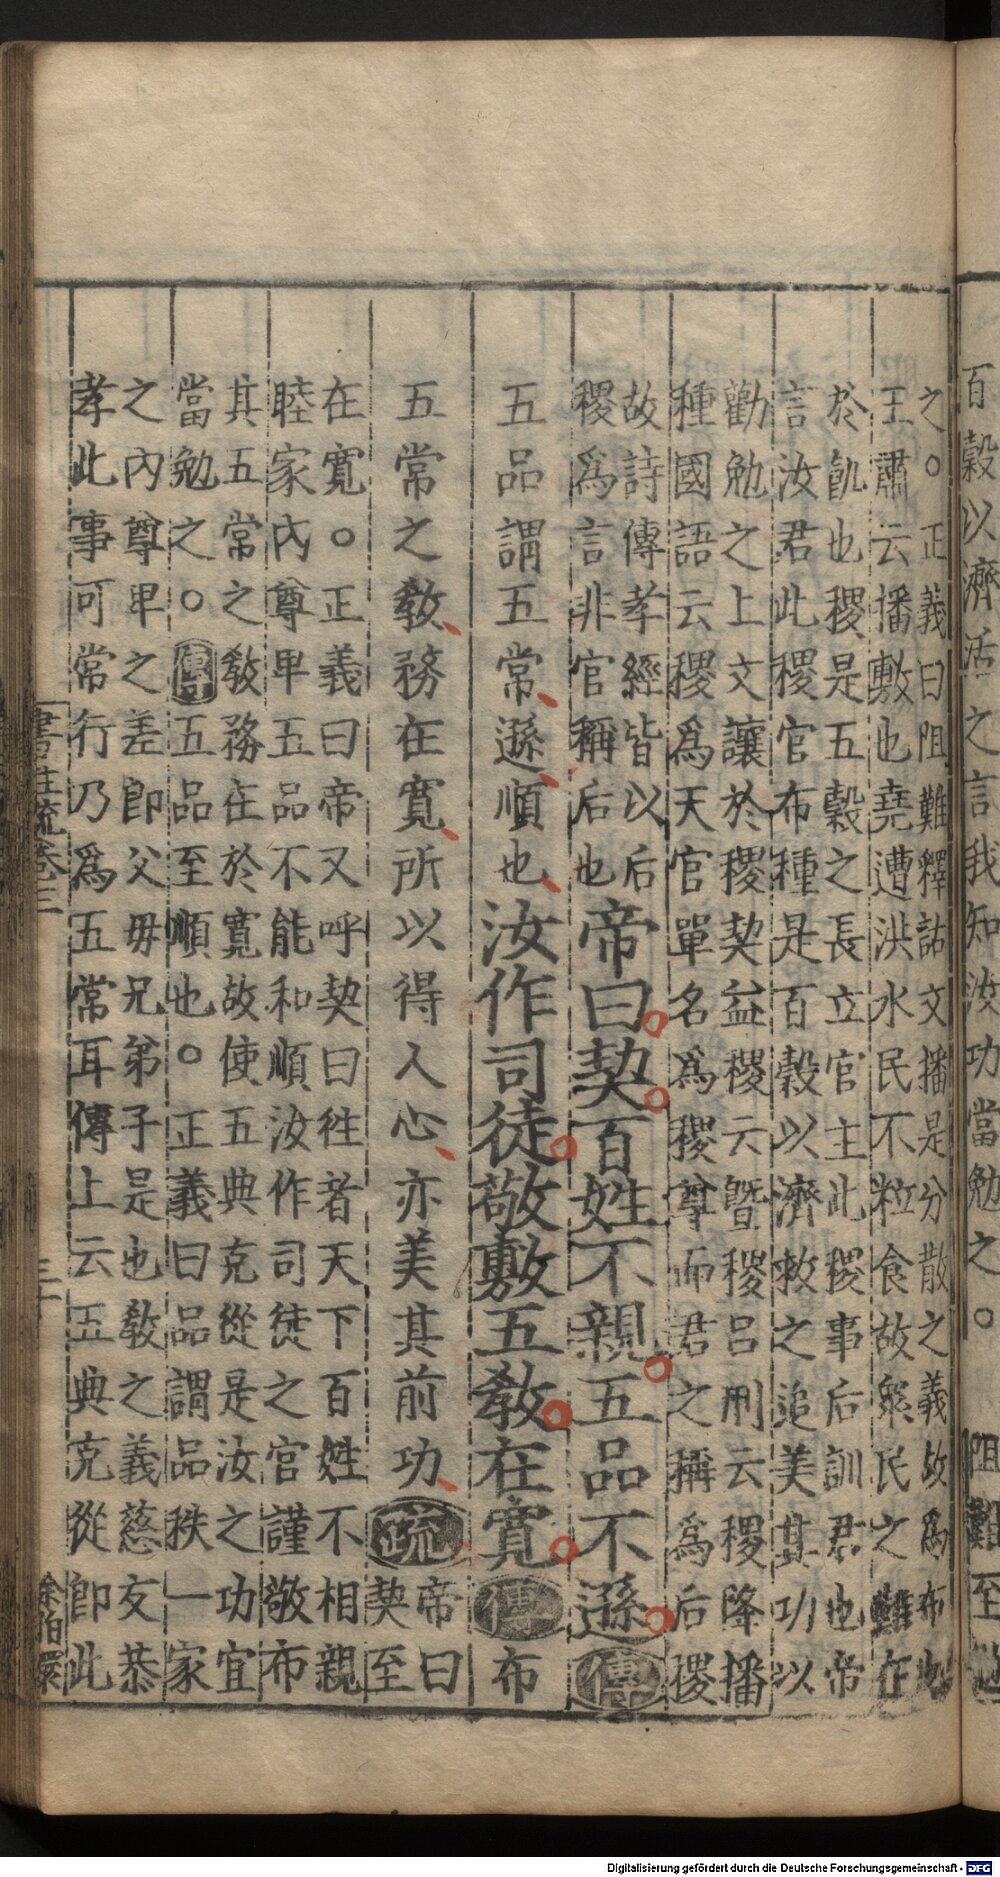 百穀以濟活之言我知汝功當勉之○阻難至
之○正義曰阻難釋詁文播是分散之義故爲布也
王肅云播敷也堯遭洪水民不粒食故衆民之難在
於飢也稷是五穀之長立官主此稷事后訓君也帝
言汝君此稷官布種是百穀以濟救之追美其功以
勸勉之上文讓於稷契益稷云暨稷呂刑云稷降播
種國語云稷爲天官單名爲稷尊而君之稱爲后稷
故詩傳孝經皆以后
稷爲言非官稱后也
帝曰契百姓不親五品不遜傳
五品謂五常遜順也汝作司徒敬敷五教在寬傳布
五常之教務在寬所以得人心亦美其前功疏
帝曰
契至
在寬○正義曰帝又呼契曰往者天下百姓不相親
睦家內尊卑五品不能和順汝作司徒之官謹敬布
其五常之教務在於寬故使五典克從是汝之功宜
當勉之○傳五品至順也○正義曰品謂品秩一家
之內尊卑之差即父毋兄弟子是也教之義慈友恭
孝此事可常行乃爲五常耳傳上云五典克從即此
書註疏卷三
余伯環
Digitalisierung gefördert durch die Deutsche Forschungsgemeinschaft - DFG